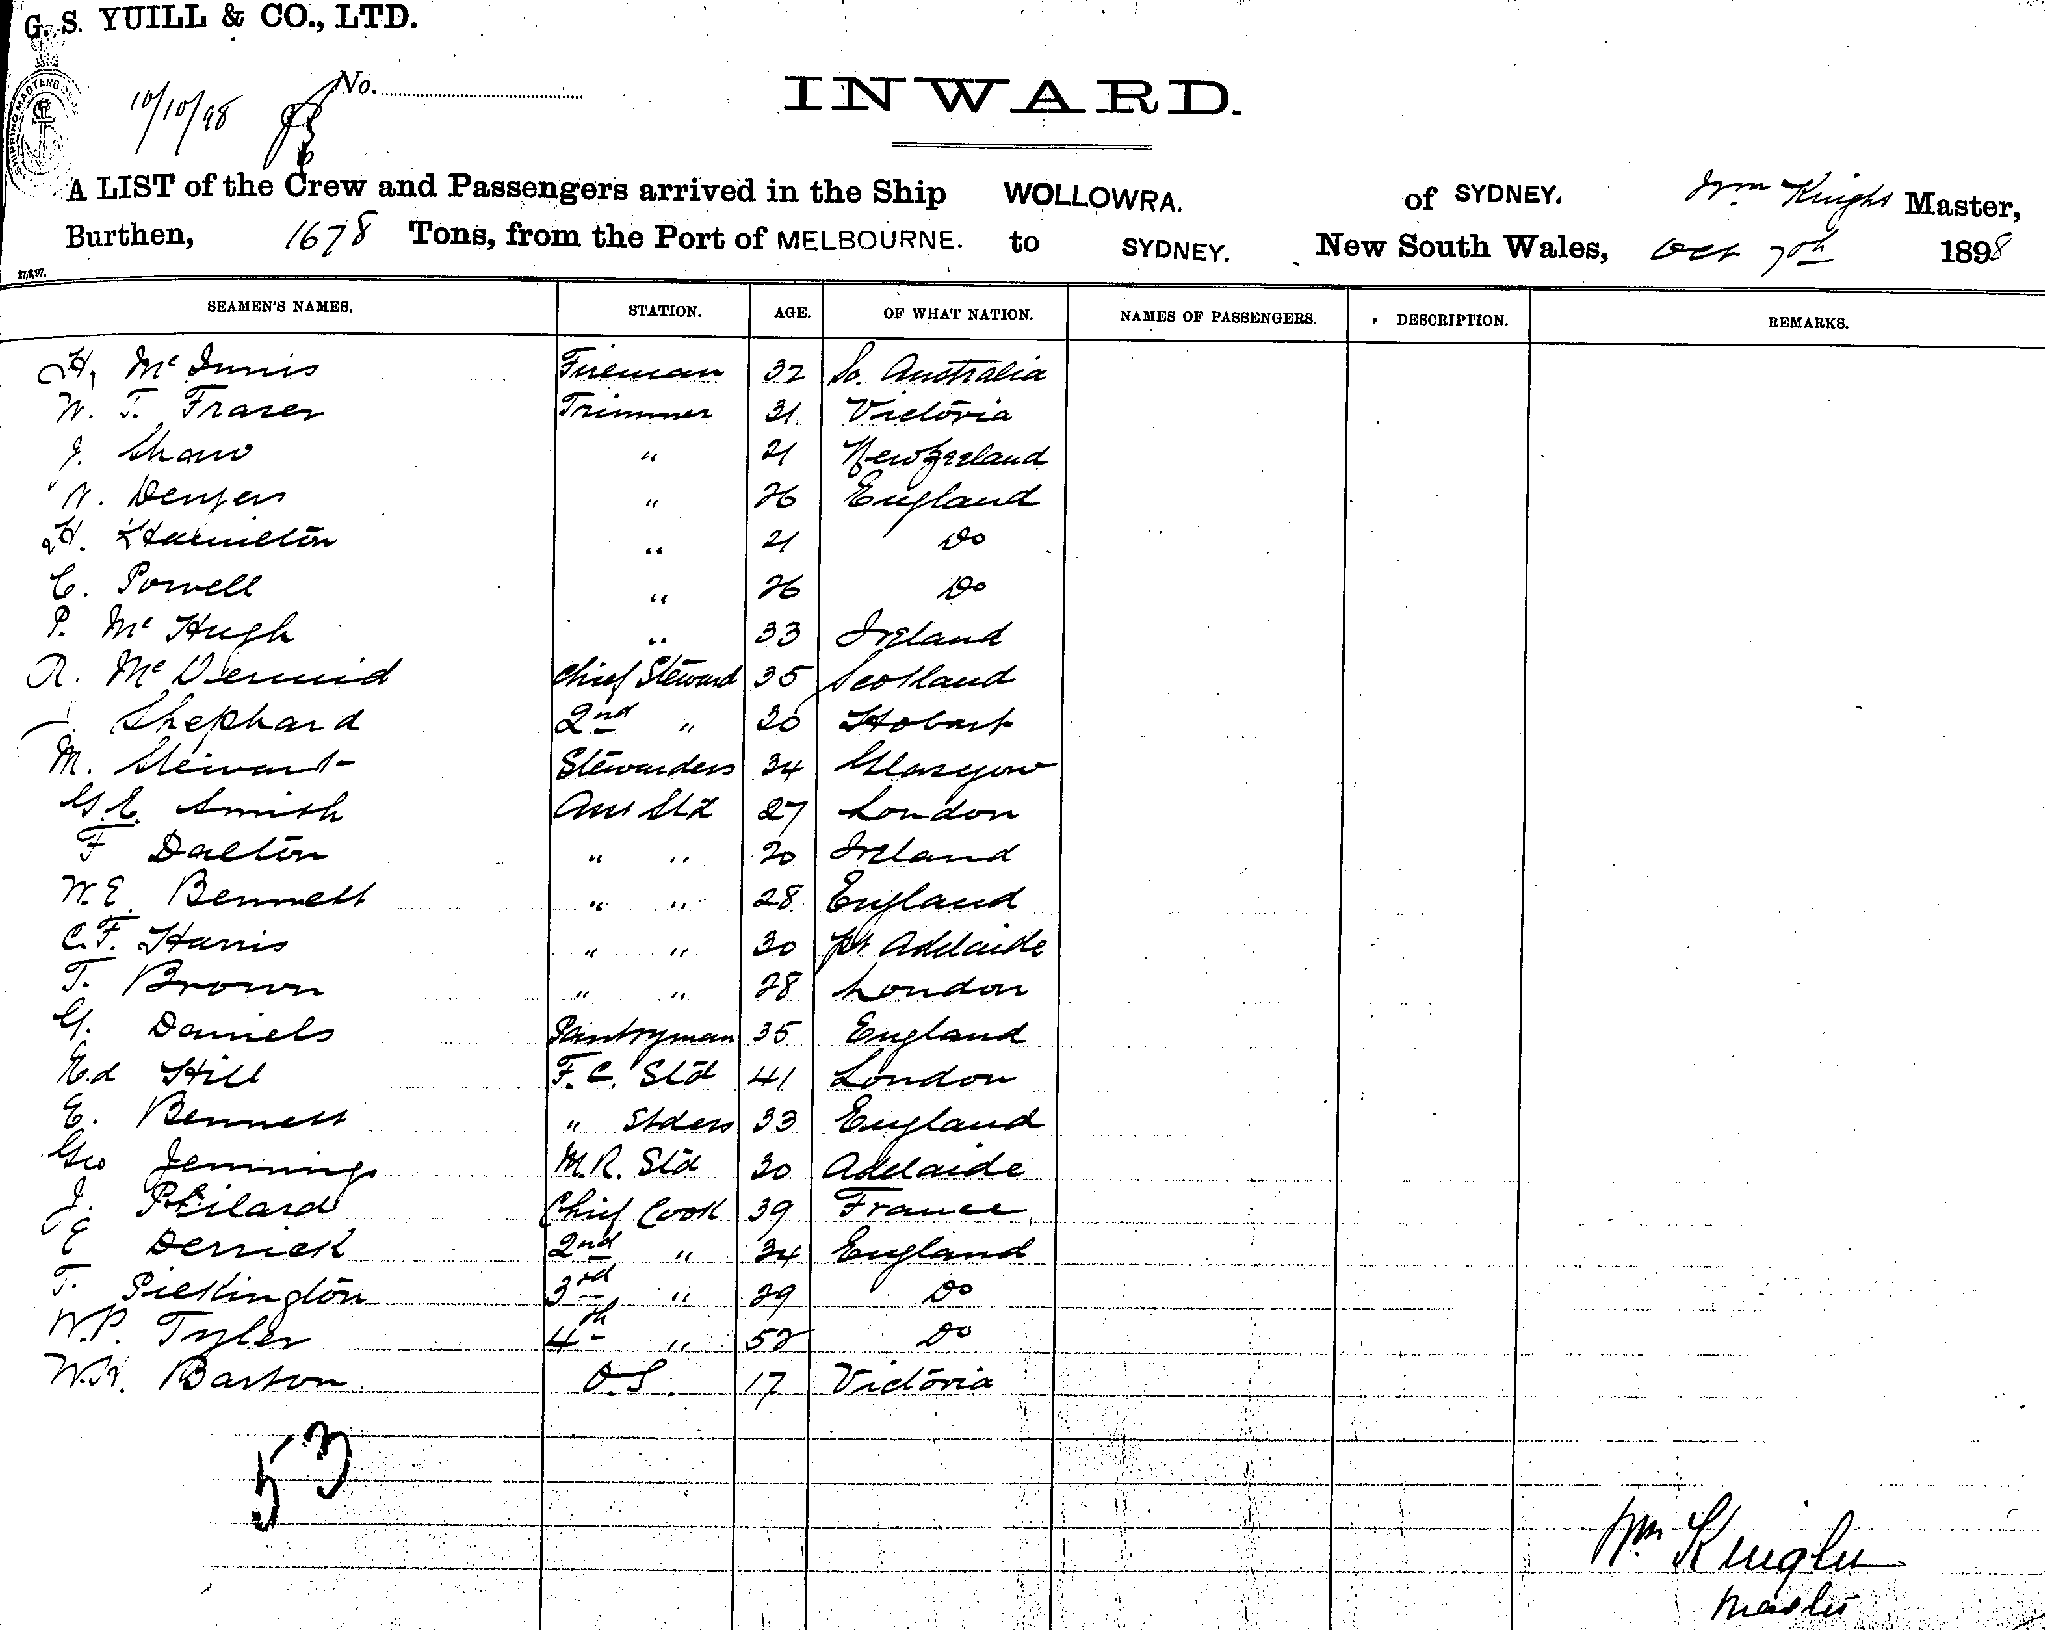 G. S. YUILL & CO., LTD.
10/10/98 No.
INWARD.
A LIST of the Crew and Passengers arrived in the Ship WOLLOWRA. of SYDNEY. Wm Knight Master,
Burthen, 1678 Tons, from the Port of MELBOURNE. to SYDNEY. New South Wales, Oct 7th 1898
SEAMEN'S NAMES. STATION. AGE. OF WHAT NATION. NAMES OF PASSENGERS. DESCRIPTION. REMARKS.
H. McInnis Fireman 32 So. Australia
W. T. Fraser Trimmer 31 Victoria
J. Shaw " 21 New Zealand
W. Denyer " 26 England
H. Hamilton " 21 Do
C. Powell " 26 Do
P. McHugh " 33 Ireland
R. McDermid Chief Steward 35 Scotland
J. Shephard 2nd " 30 Hobart
M. Stewart Stewardess 34 Glasgow
G. E. Smith Ass Std 27 London
F Dalton " " 20 Ireland
W. E. Bennett " " 28 England
C. F. Harris " " 30 Pt Adelaide
T. Brown " " 28 London
G. Daniels Pantryman 35 England
Ed Hill F. C. Std 41 London
E. Bennett " Stdess 33 England
Geo Jennings M. R. Std 30 Adelaide
J. Peilard Chief Cook 39 France
E Derrick 2nd " 34 England
T. Pilkington 3rd " 29 Do
W. P. Tyler 4th " 52 Do
W. H. Barton O. S. 17 Victoria
53
Wm Knight
Master